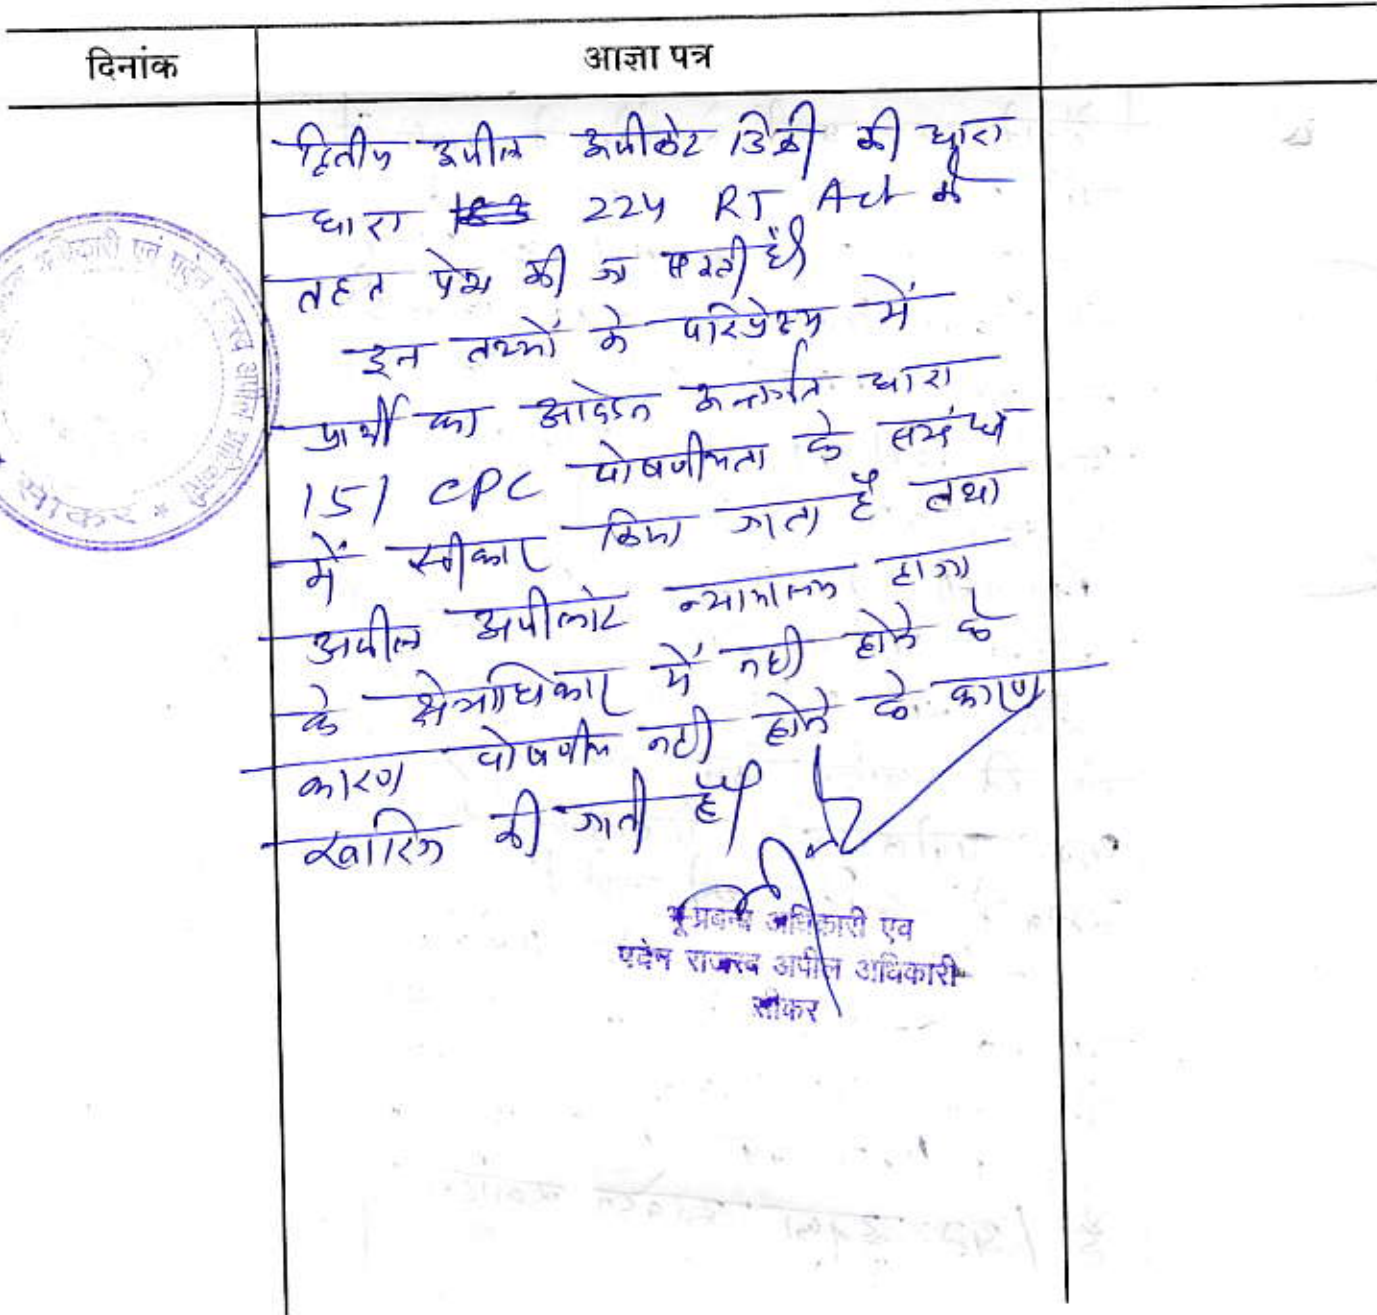 दिनांक
आज्ञा पत्र
द्वितीय अपील अपीलेट डिक्री की धारा
धारा 224 RT Act के
तहत पेश की जा सकती है।
इन तथ्यों के परिप्रेक्ष्य में
प्रार्थी का आवेदन अन्तर्गत धारा
151 CPC पोषणीयता के संबंध
में स्वीकार किया जाता है तथा
अपील अपीलांट न्यायालय हाजा
के क्षेत्राधिकार में नही होने के
कारण पोषणीय नही होने के कारण
खारिज की जाती है।
भू-प्रबन्ध अधिकारी एव
पदेन राजस्व अपील अधिकारी
सीकर
अधिकारी एवं पदेन राजस्व अपील
सीकर *